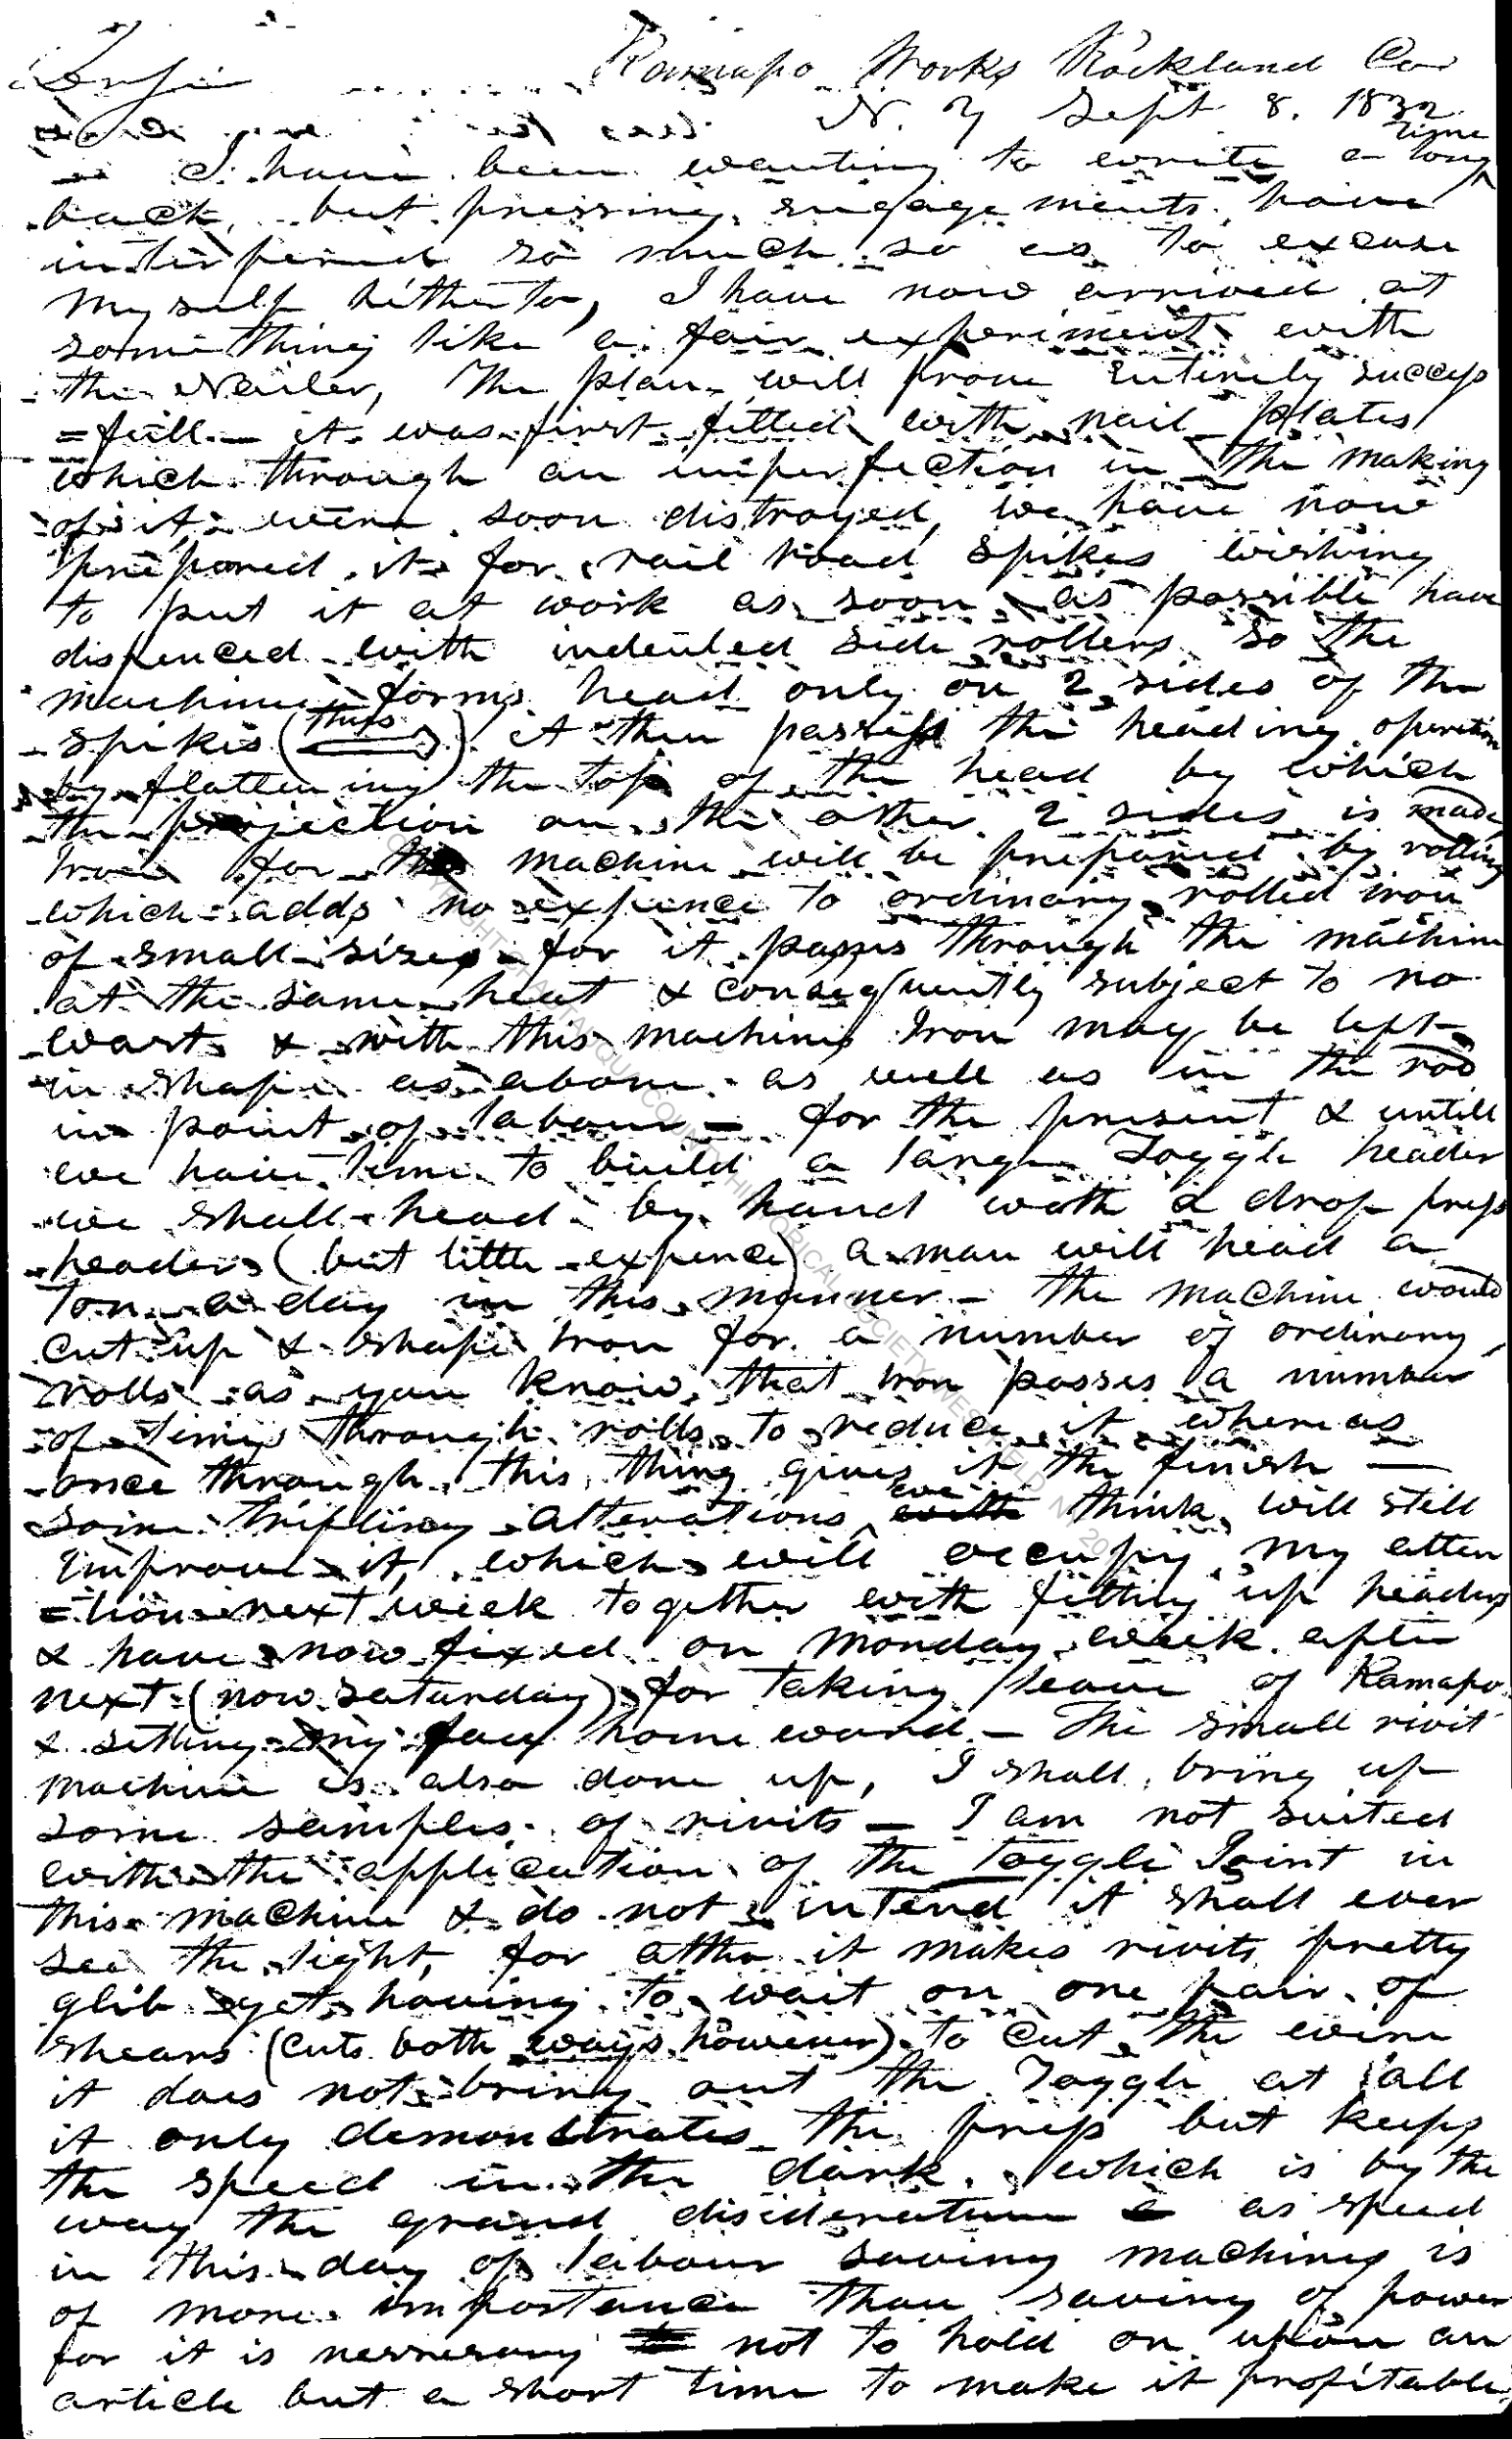 Ramapo Works Rockland Co
N. Y Sept 8. 1832
I have been wanting to write a long time
back, but pressing engagements have
interfered so much so as to excuse
myself hitherto, I have now arrived at
something like a fair experiment with
the Nailer, The plan will prove entirely success
=full — it was first fitted with nail plates
which through an imperfection in the making
of it, were soon distroyed, we have now
prepared it for rail road spikes wishing
to put it at work as soon as possible have
dispenced with indented side rollers so the
machine forms head only on 2 sides of the
spikes (thus) it then passes the heading operation
by flattening the top of the head by which
the projection on the other 2 sides is made
Iron for the machine will be prepared by rolling
which adds no expence to ordinary rolled iron
of small sizes for it passes through the machine
at the same heat & consequently subject to no
wast & with this machine Iron may be left
in shape as above as well as in the rod
in point of labour — for the present & untill
we have time to build a large Toggle header
we shall head by hand with a drop press
header (but little expence) a man will head a
Ton a day in this manner — the machine would
cut up & shape Iron for a number of ordinary
rolls as you know that Iron passes a number
of times through rolls to reduce it whereas
once through this thing gives it the finish —
some trifling alterations we think will still
improve it, which will occupy my atten
=tion next week together with fitting up headers
& have now fixed on monday week after
next (now saturday) for taking leave of Ramapo
& setting my face home ward — The small rivit
machine is also done up, I shall bring up
some samples of rivits — I am not suited
with the application of the Toggle Joint in
this machine & do not intend it shall ever
see the light, for altho it makes rivits pretty
glib yet having to wait on one pair of
shears (cuts both ways however) to cut the wire
it does not bring out the Toggle at all
it only demonstrates the press but keeps
the speed in the dark. which is by the
way the grand disideratum as speed
in this day of labour saving machines is
of more importance than saving of power
for it is nessesary not to hold on upon an
article but a short time to make it profitable
COPYRIGHT CHAUTAUQUA COUNTY HISTORICAL SOCIETY WESTFIELD, NY 20